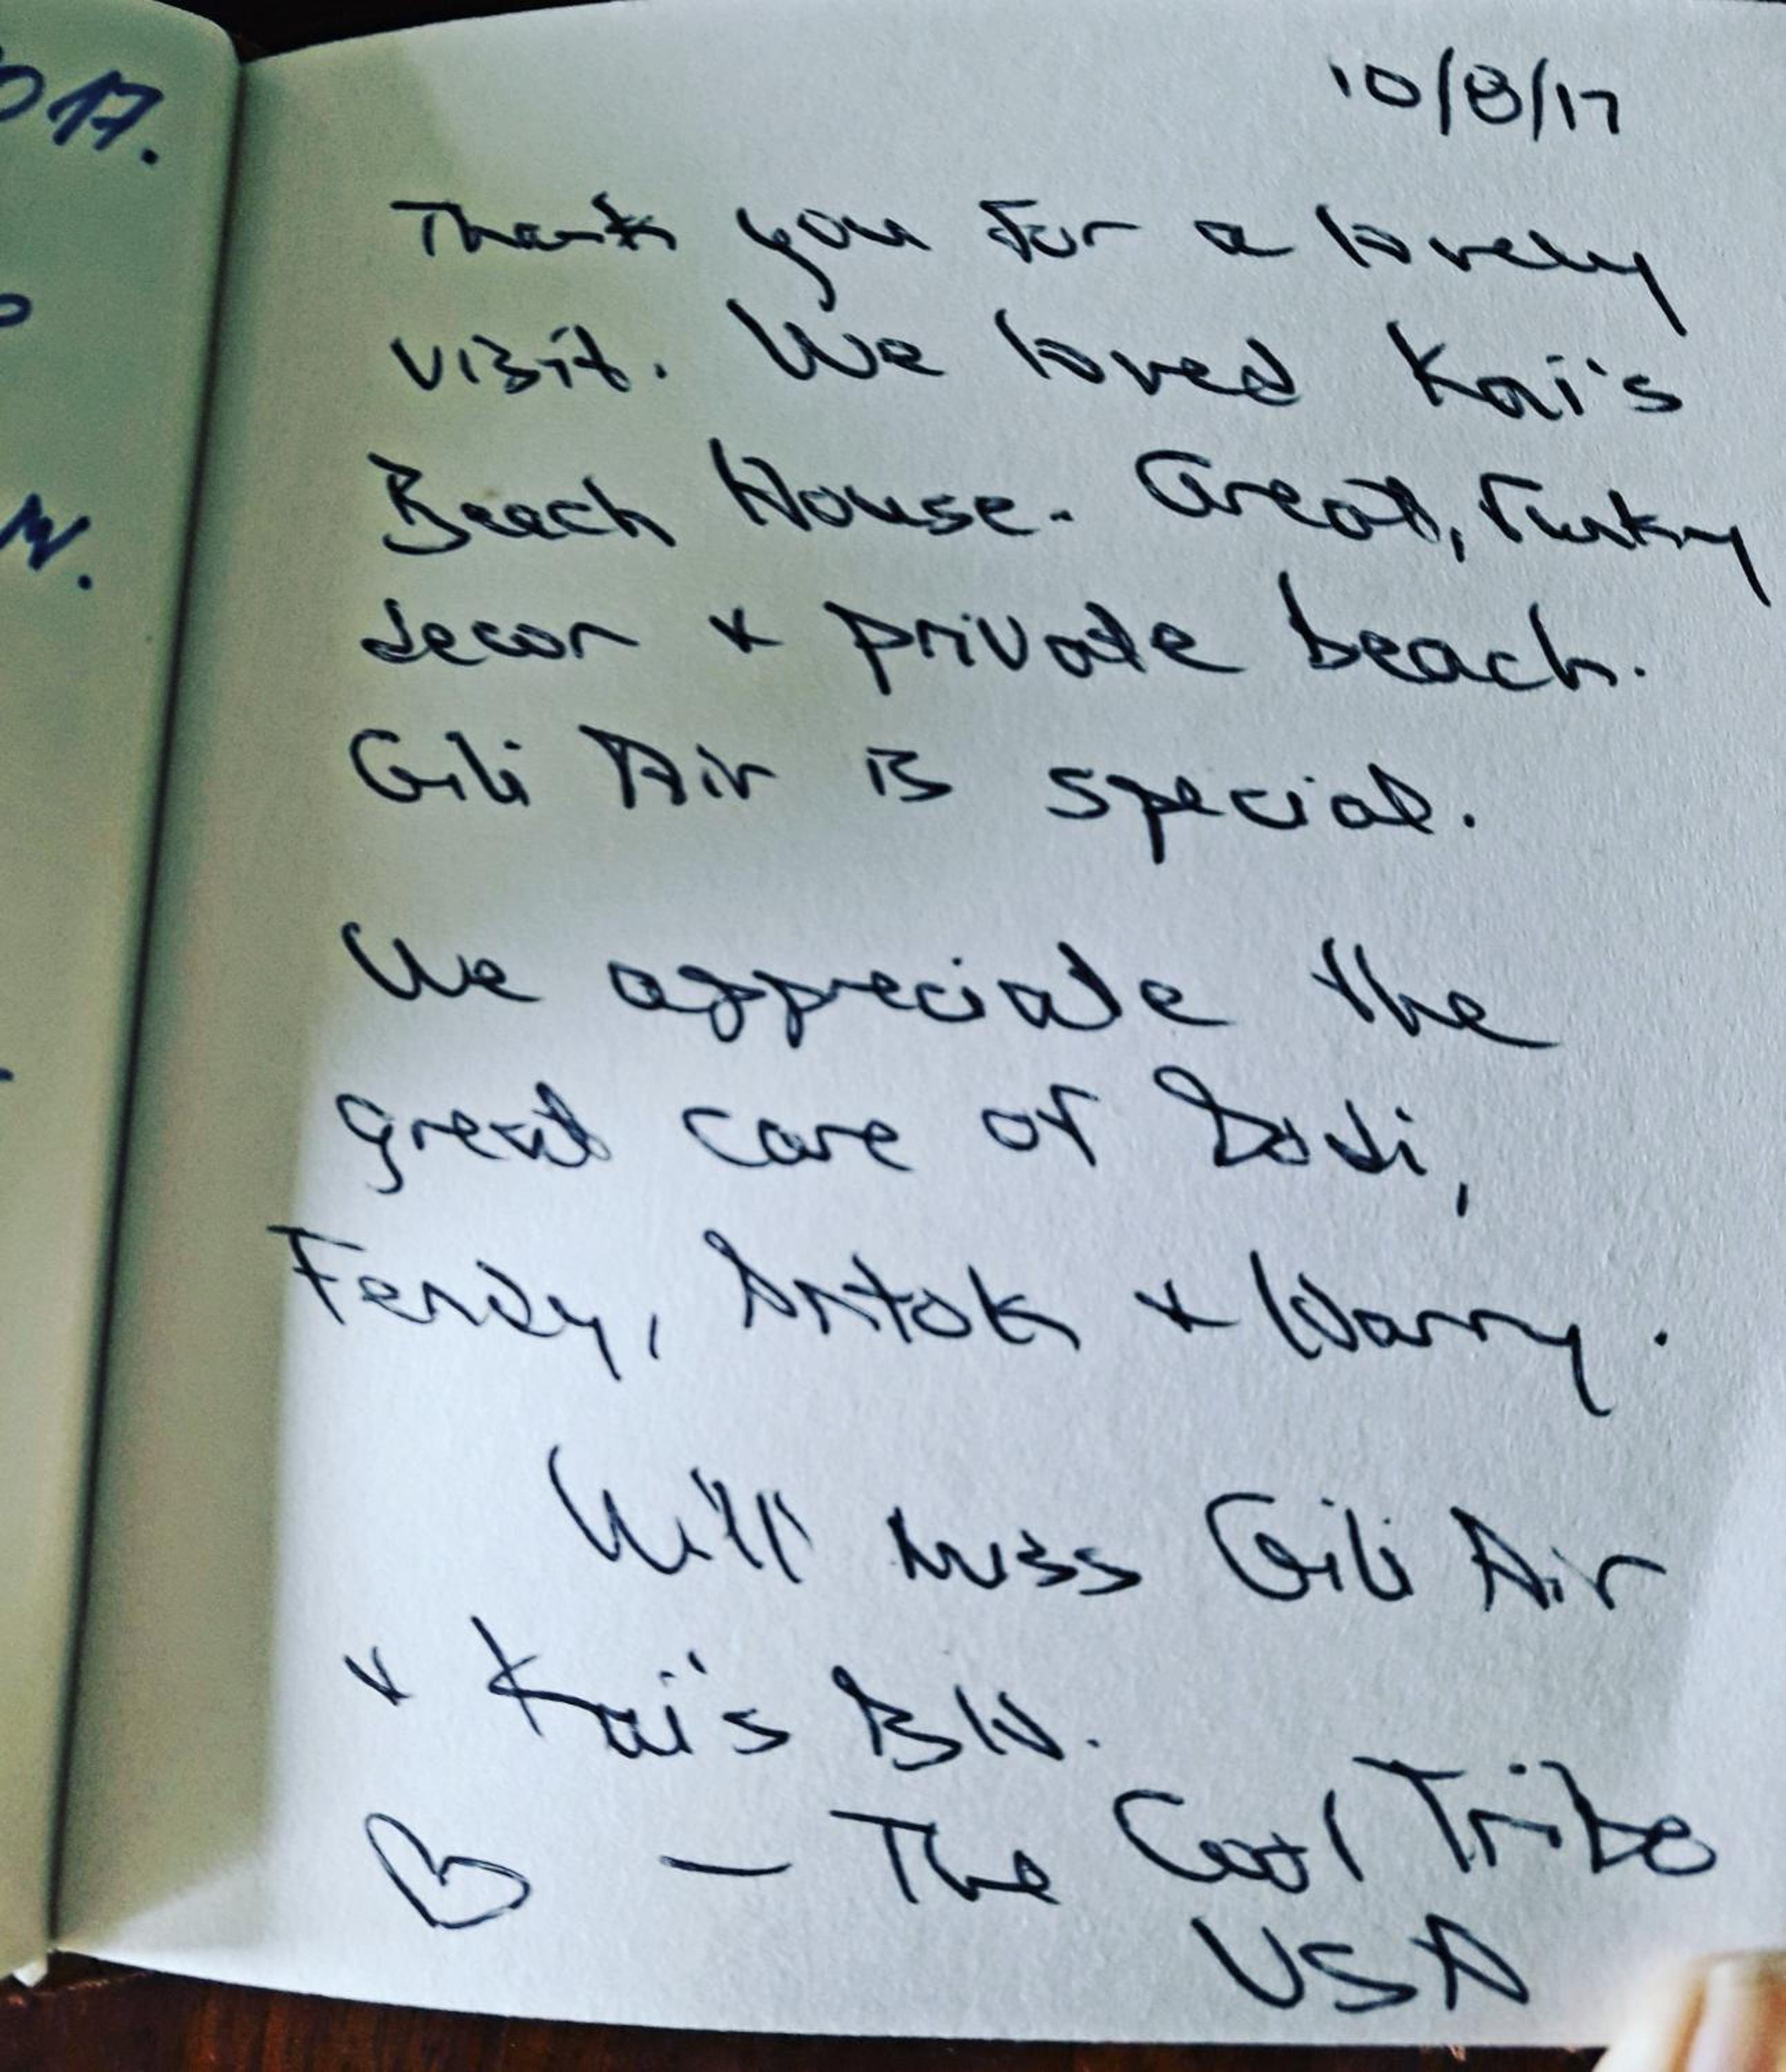 017.
10/8/17
Thank you for a lovely
visit. We loved Kai's
Beach House. Great, Funky
decor & private beach.
Gili Air is special.
We appreciate the
great care of Dodi,
Ferdy, Antok & Harry.
Will miss Gili Air
& Kai's BH.
♡ — The Cool Tribe
USA